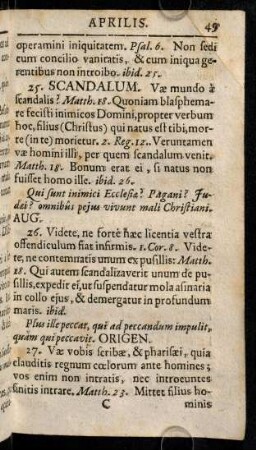 APRILIS. 49
operamini iniquitatem. Psal. 6. Non sedi
cum concilio vanitatis, & cum iniqua ge-
rentibus non introibo. ibid. 25.
25. SCANDALUM. Væ mundo à
scandalis? Matth. 18. Quoniam blasphema-
re fecisti inimicos Domini, propter verbum
hoc, filius (Christus) qui natus est tibi, mor-
te (in te) morietur. 2. Reg. 12. Veruntamen
væ homini illi, per quem scandalum venit.
Matth. 18. Bonum erat ei, si natus non
fuisset homo ille. ibid. 26.
Qui sunt inimici Ecclesiæ? Pagani? Ju-
dæi? omnibûs pejus vivunt mali Christiani.
AUG.
26. Videte, ne fortè hæc licentia vestra
offendiculum fiat infirmis. 1. Cor. 8. Vide-
te, ne contemnatis unum ex pusillis: Matth.
18. Qui autem scandalizaverit unum de pu-
sillis, expedit ei, ut suspendatur mola asinaria
in collo ejus, & demergatur in profundum
maris. ibid.
Plus ille peccat, qui ad peccandum impulit,
quàm qui peccavit. ORIGEN.
27. Væ vobis scribæ, & pharisæi, quia
clauditis regnum cœlorum ante homines;
vos enim non intratis, nec introeuntes
sinitis intrare. Matth. 23. Mittet filius ho-
C minis